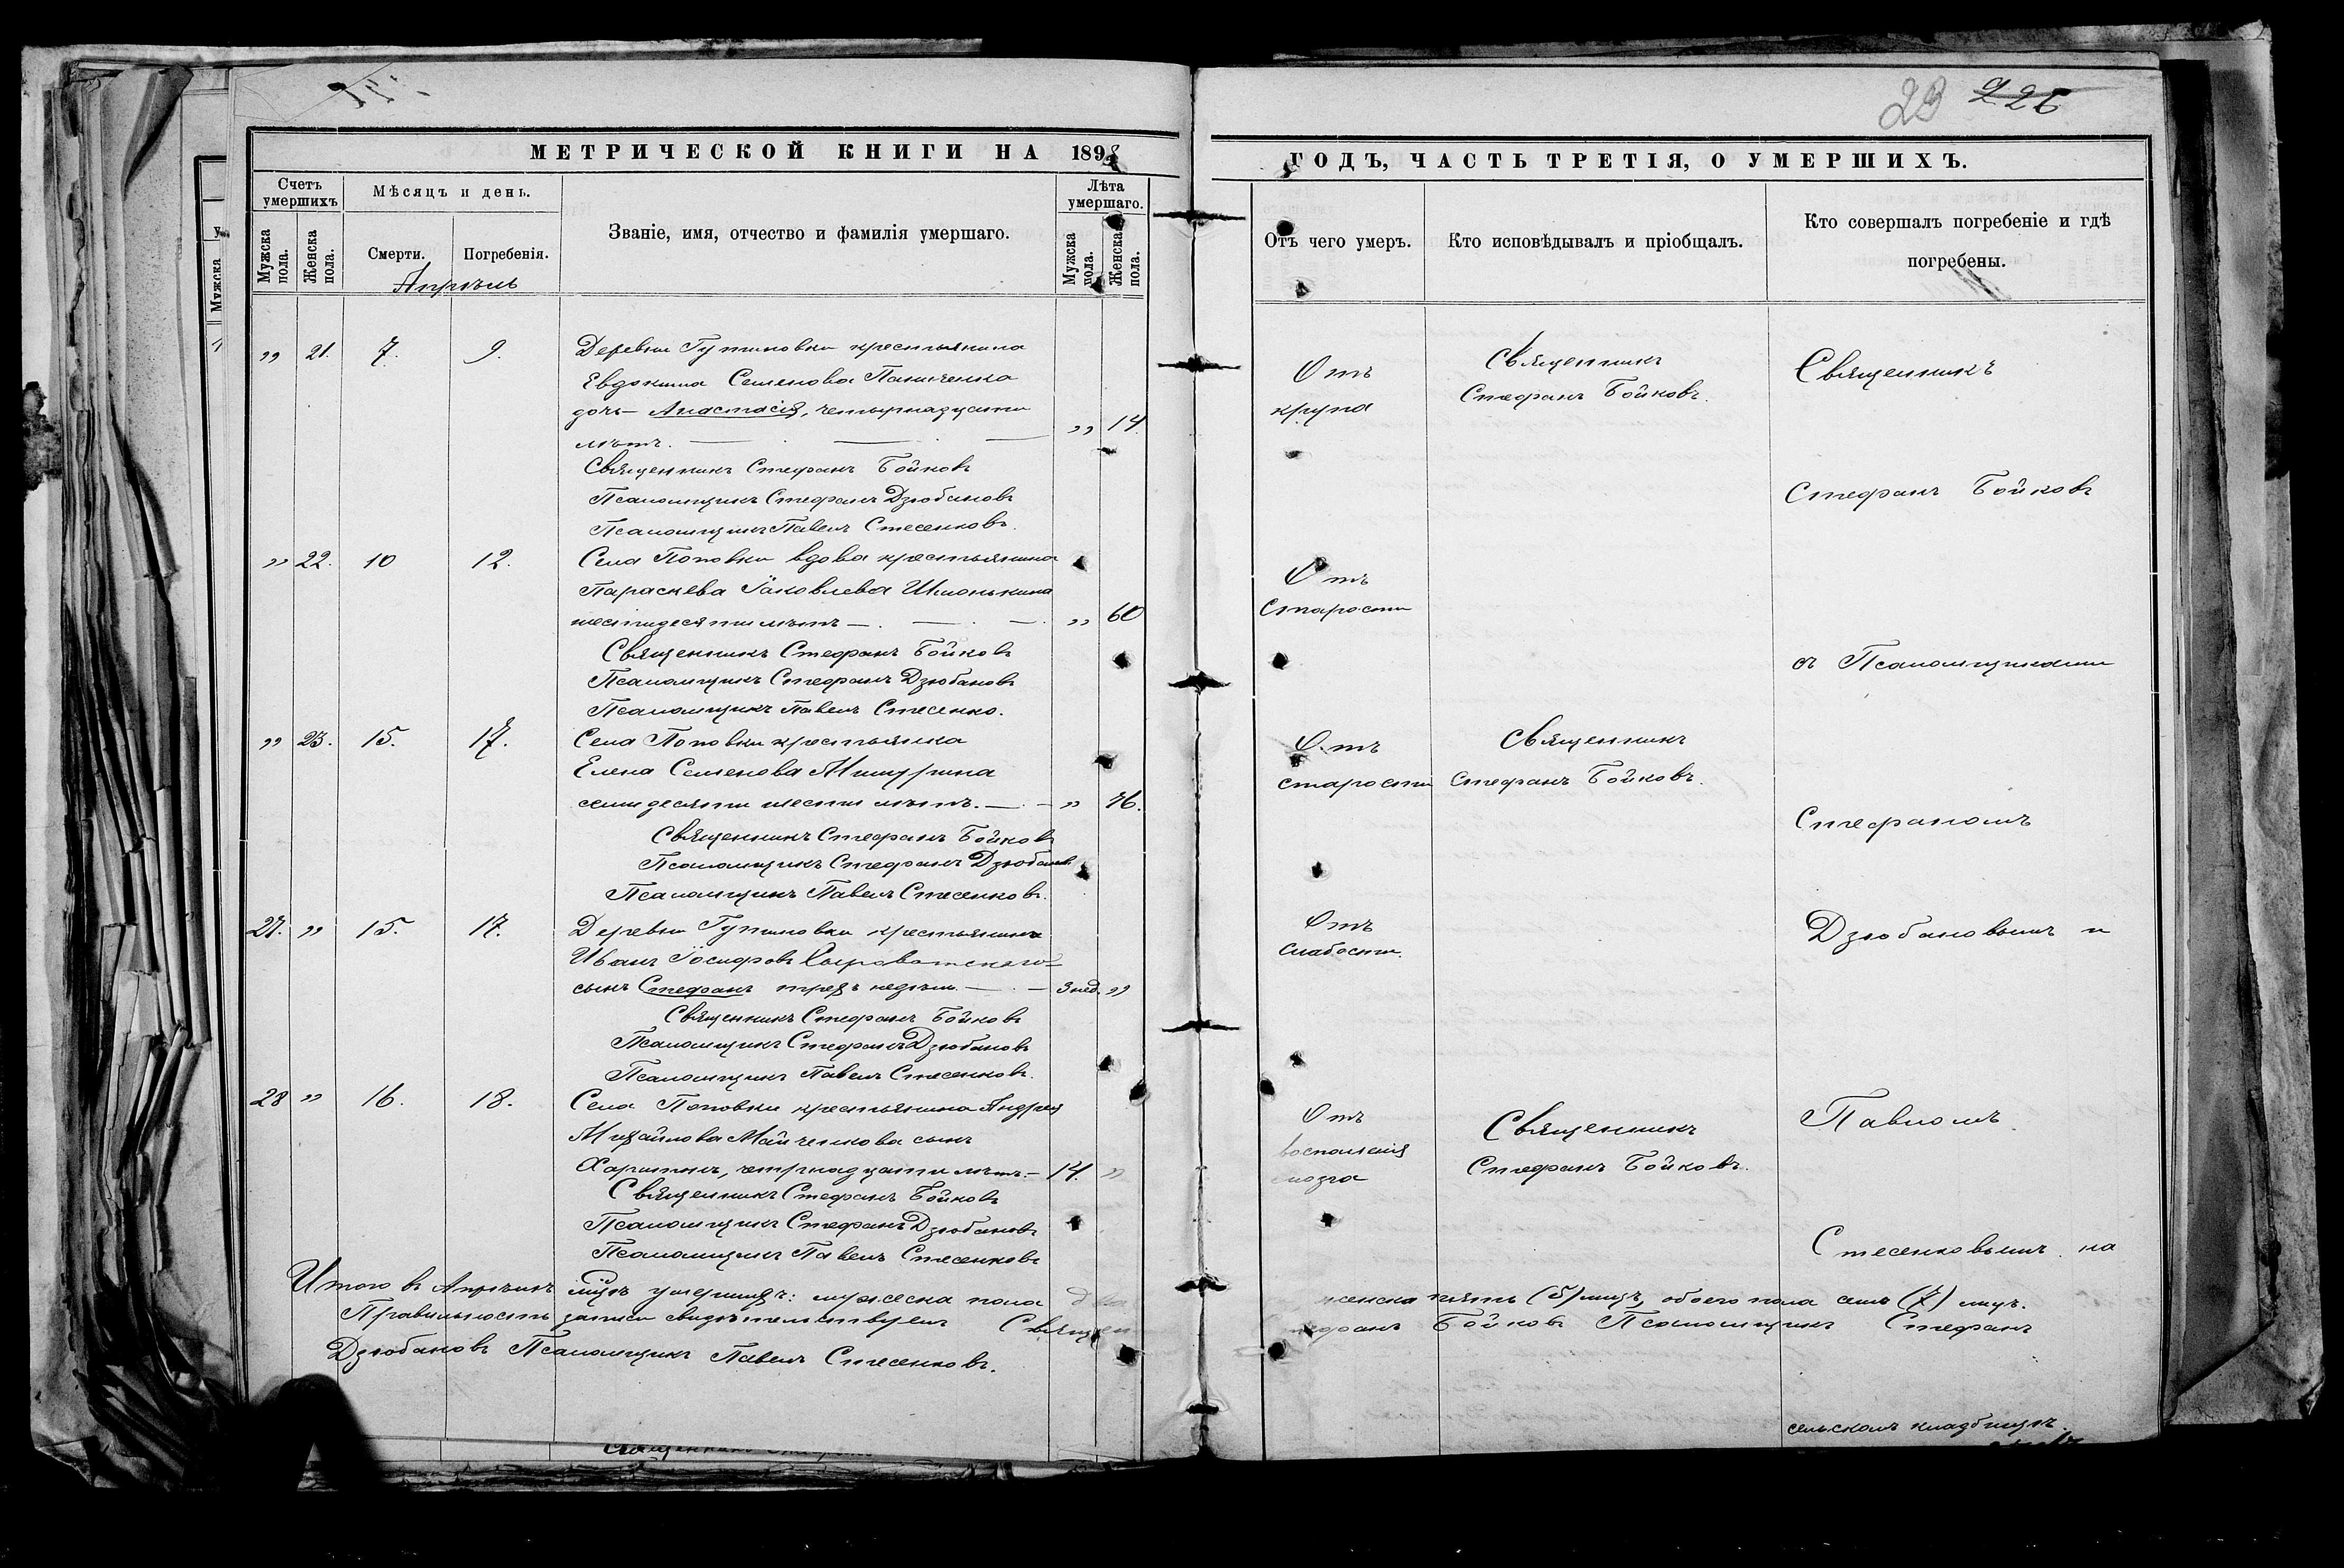 23 226
МЕТРИЧЕСКОЙ КНИГИ НА 1898
Счетъ умершихъ
Мѣсяцъ и день.
Званіе, имя, отчество и фамилія умершаго.
Лѣта умершаго.
Мужска пола.
Женска пола.
Смерти.
Погребенія.
Мужска пола.
Женска пола.
Апрѣль
„ 21. 7. 9. Деревни Гутиновки крестьянина
Евдокима Семенова Паниченка
дочь – Анастасія, четырнадцати
лѣтъ. „ 14
Священникъ Стефанъ Бойковъ
Псаломщикъ Стефанъ Дзюбановъ
Псаломщикъ Павелъ Стесенковъ.
„ 22. 10 12. Села Поповки вдова крестьянина
Параскева Іаковлева
шестидесяти лѣтъ – „ 60
Священникъ Стефанъ Бойковъ
Псаломщикъ Стефанъ Дзюбановъ
Псаломщикъ Павелъ Стесенко.
„ 23. 15. 17. Села Поповки крестьянка
Елена Семенова Мишурина
семидесяти шести лѣтъ. – „ 76.
Священникъ Стефанъ Бойковъ
Псаломщикъ Стефанъ Дзюбановъ
Псаломщикъ Павелъ Стесенковъ.
27. „ 15. 17. Деревни Гутиновки крестьянина
Иванъ Іосифовъ Сыроватскаго
сынъ Стефанъ трехъ недѣли. – 3 нед. „
Священникъ Стефанъ Бойковъ
Псаломщикъ Стефанъ Дзюбановъ
Псаломщикъ Павелъ Стесенковъ.
28 „ 16. 18. Села Поповки крестьянина Андрея
Михайлова Майченкова сынъ
Харитонъ, четрнадцати лѣтъ. – 14. „
Священникъ Стефанъ Бойковъ
Псаломщикъ Стефанъ Дзюбановъ
Псаломщикъ Павелъ Стесенковъ
Итого въ Апрѣлѣ мцѣ умершихъ: мужеска пола два
Правильность записи свидѣтельствуемъ Священ
Дзюбановъ Псаломщикъ Павелъ Стесенковъ.
ГОДЪ, ЧАСТЬ ТРЕТІЯ, О УМЕРШИХЪ.
Отъ чего умеръ.
Кто исповѣдывалъ и пріобщалъ.
Кто совершалъ погребеніе и гдѣ погребены.
Отъ
крупа
Священникъ
Стефанъ Бойковъ.
Священникъ
Стефанъ Бойковъ
Отъ
Старости
съ Псаломщиками
Отъ
старости
Священникъ
Стефанъ Бойковъ.
Стефаномъ
Отъ
Слабости.
Дзюбановымъ и
Отъ
воспаленія
мозга
Священникъ
Стефанъ Бойковъ.
Павломъ
Стесенковымъ на
женска пять (5) лицъ, обоего пола семь (7) лицъ.
Стефанъ Бойковъ Псаломщикъ Стефанъ
сельскомъ кладбищѣ.